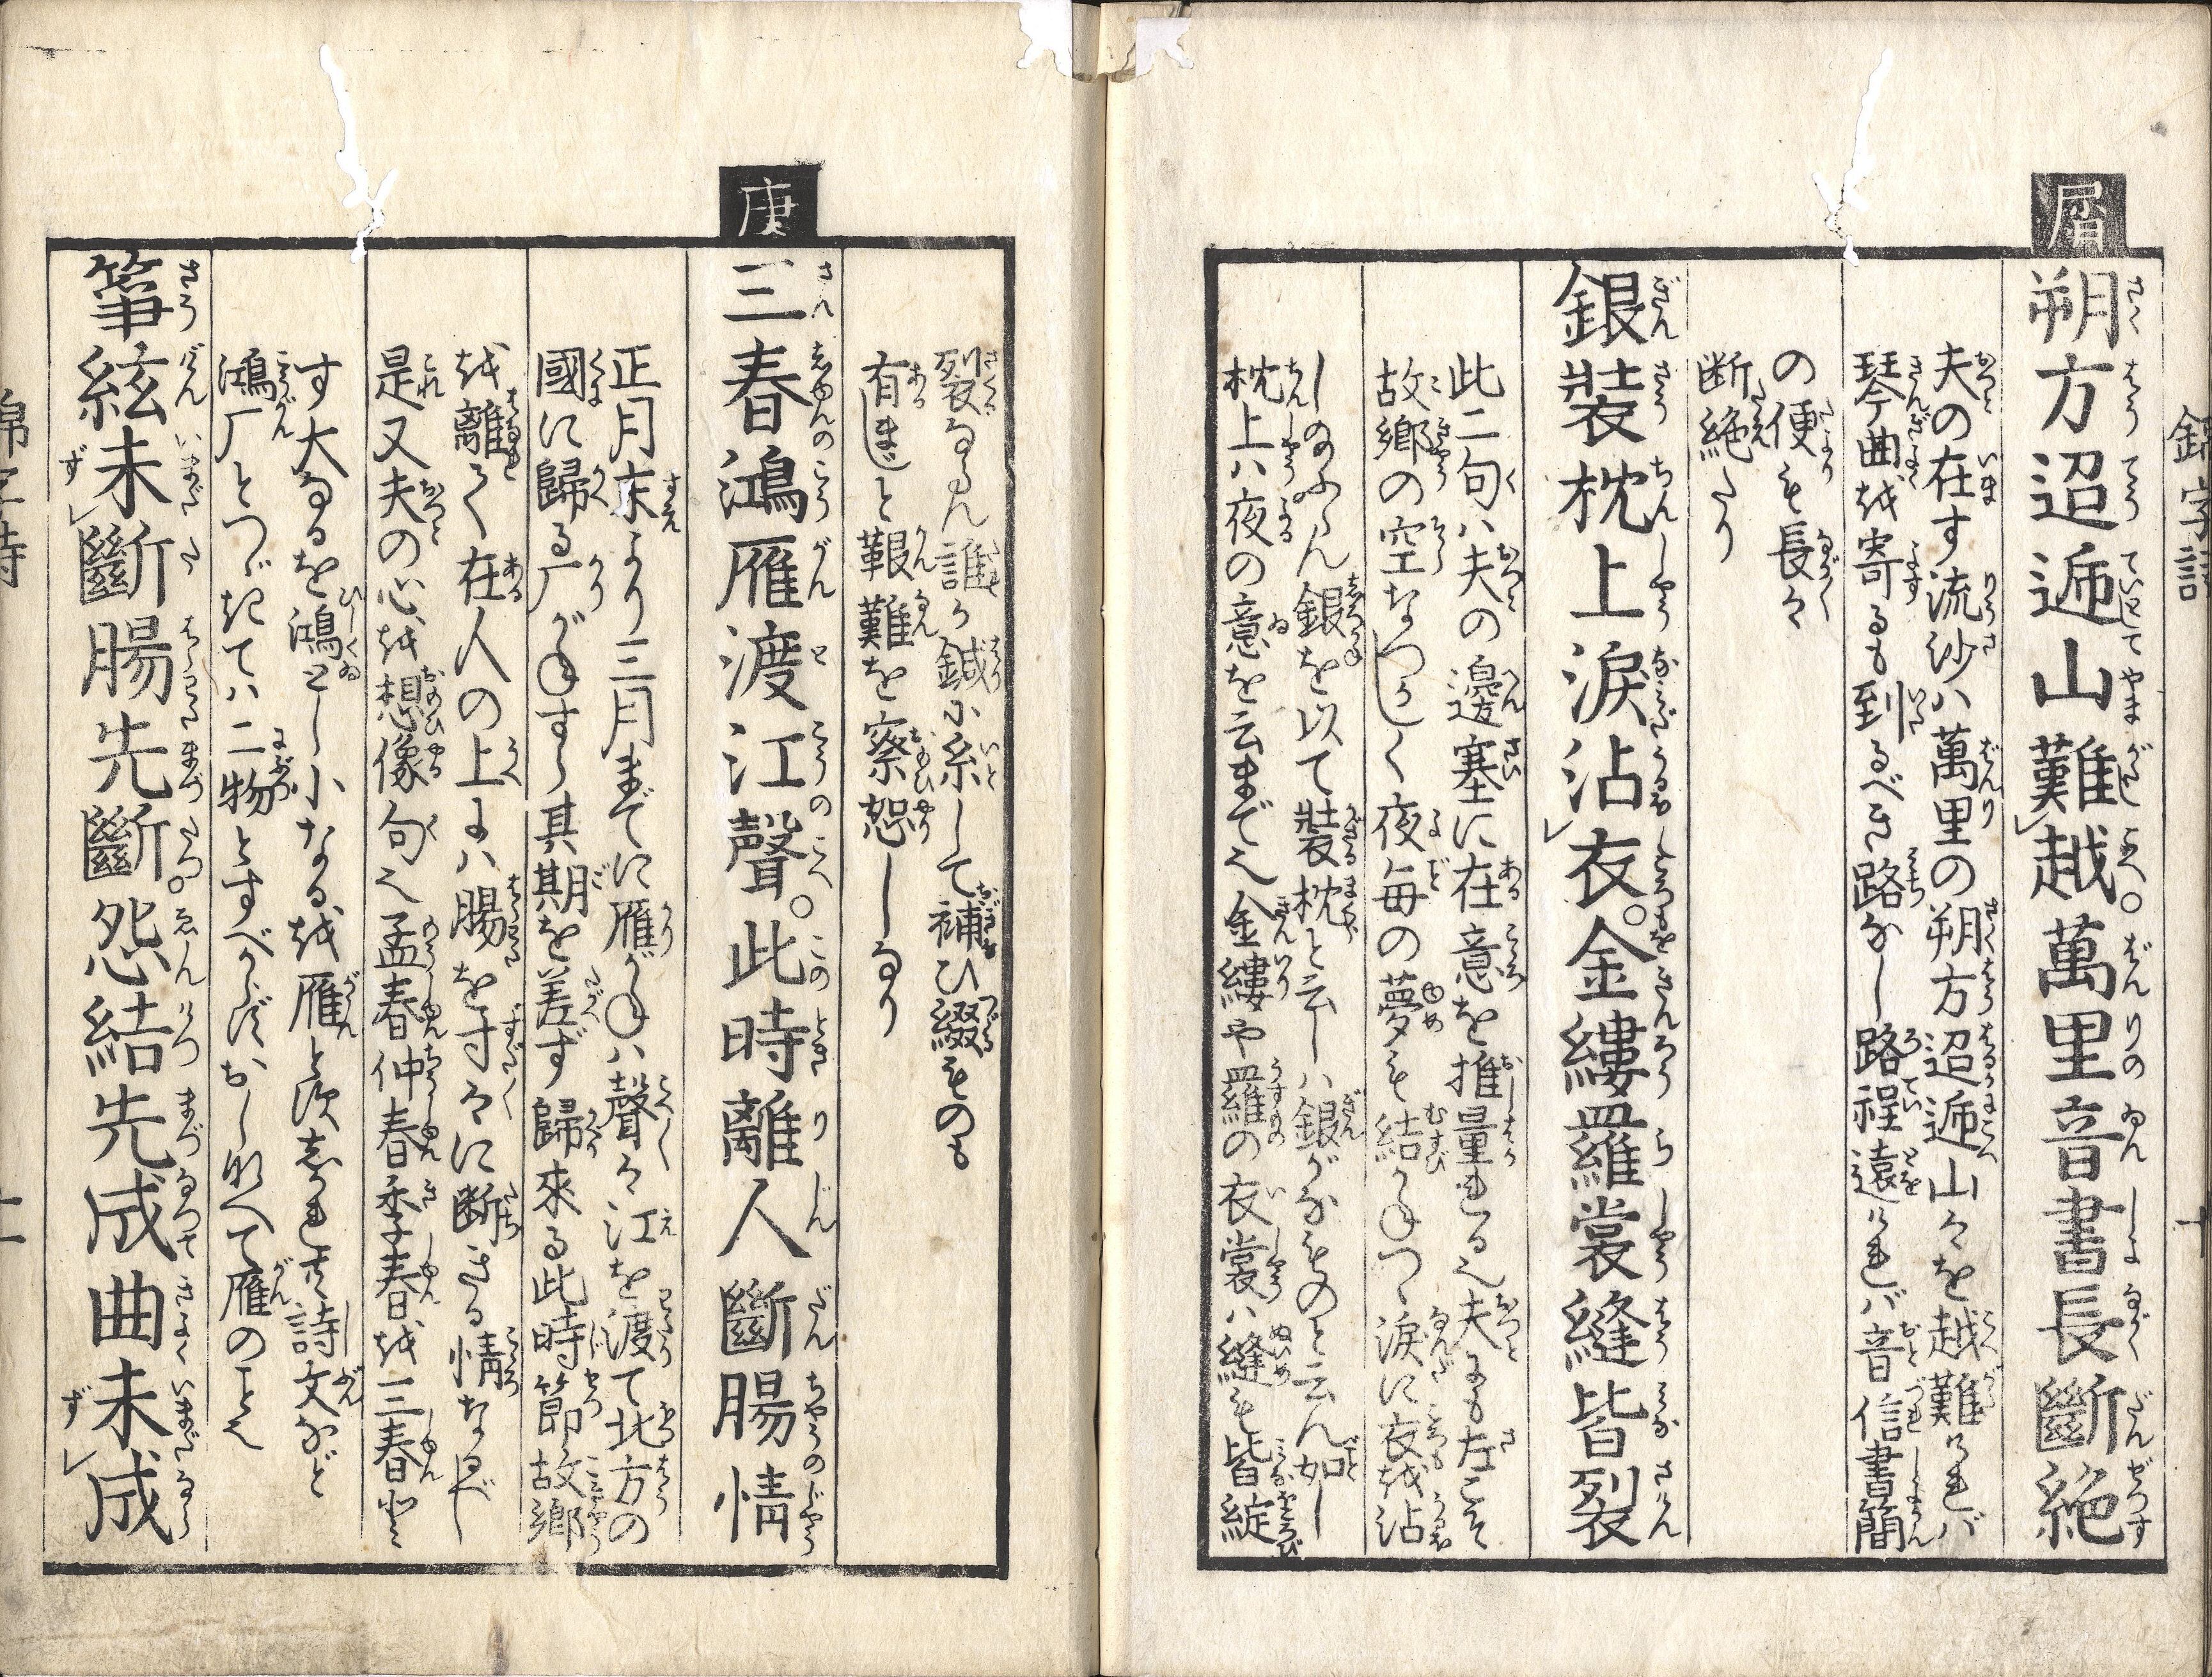 屑
朔方迢遞山難越。萬里音書長斷絶
夫の在す流沙ハ萬里の朔方迢遞山々を越難ければ
琴曲を寄るも到るべき路なし路程遠ければ音信書簡
の便も長々
断絶たり
銀裝枕上淚沾衣。金縷羅裳縫皆裂
此二句ハ夫の邊塞に在意を推量れる也夫にも左こそ
故郷の空なつかしく夜毎の夢も結かねつゝ淚に衣を沾
しのふらん銀を以て裝枕と云しハ銀がなものと云ん如し
枕上ハ夜の意を云まで也金縷や羅の衣裳ハ縫も皆綻
裂なん誰か鍼に糸して補ひ綴ものも
有まじと艱難を察恕しるなり
庚
三春鴻雁渡江聲。此時離人斷腸情
正月末より三月までに雁がねハ聲々江を渡て北方の
國に歸る厂がねすら其期を差ず歸來る此時節故郷
を離て在人の上にハ腸を寸々に断きる情なるべし
是又夫の心を想像句也孟春仲春季春を三春と
す大なるを鴻とし小なるを雁と次
鴻厂とつゞきてハ二物とすべからず
雁のこと也
箏絃未斷腸先斷。怨結先成曲未成
錦字詩
十